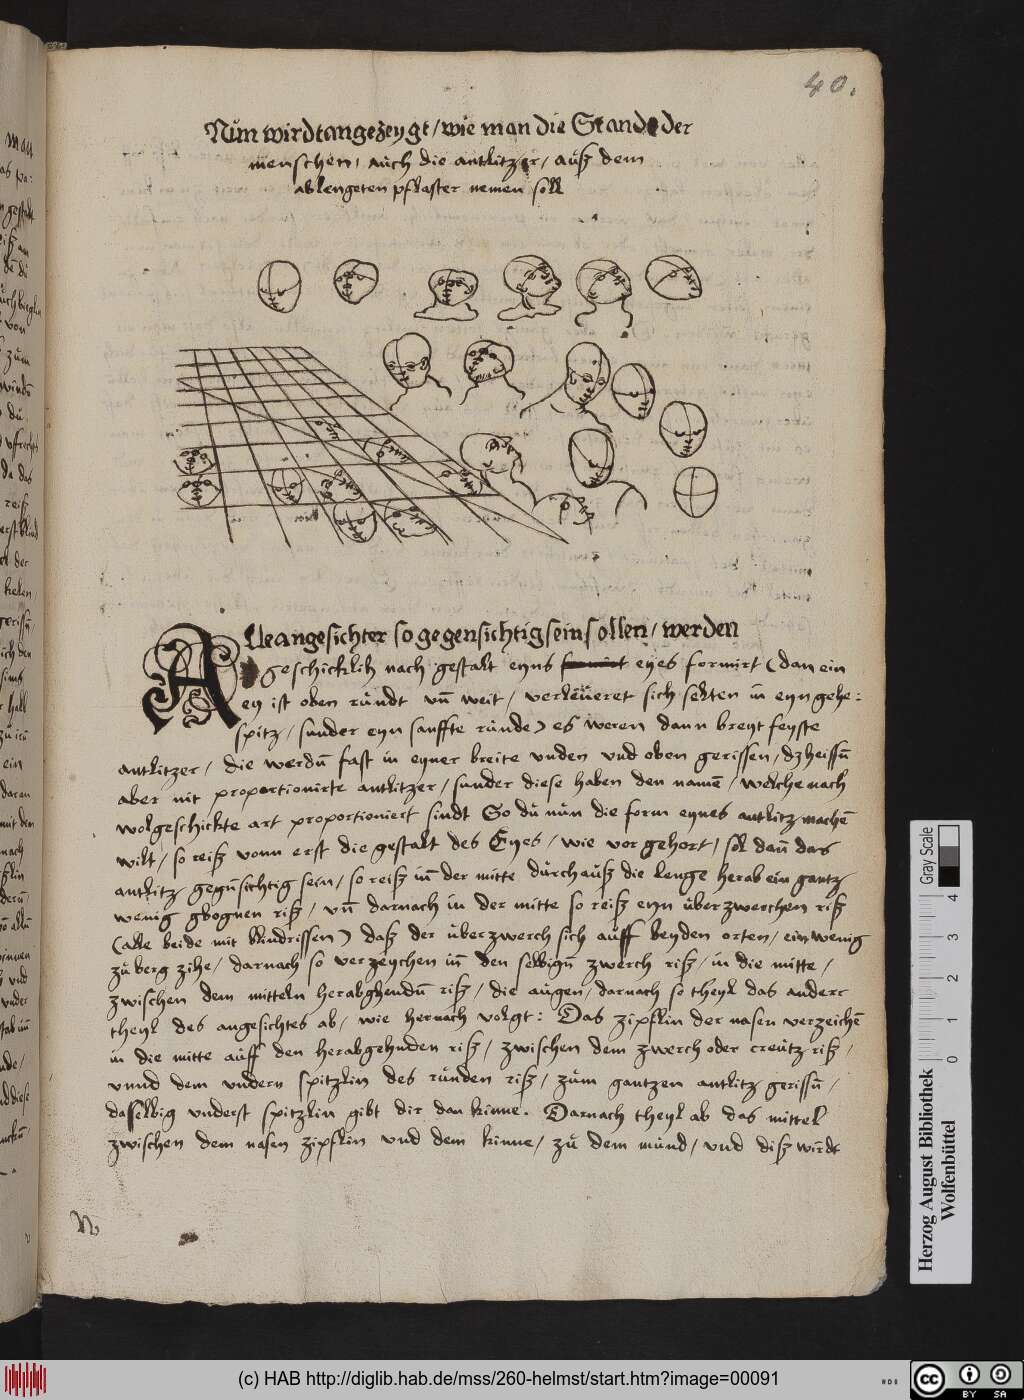 40.
Nůn wirdt angezeygt / wie man die Stande der
menschen, auch die antlitzer, aůsz dem
ablengeten pflaster nemen soll
Alle angesichter so gegensichtig sein sollen, werden
geschicklih nach gestalt eyns formirt eyes formirt (dan ein
ey ist oben růndt vñ weit, verleůeret sich selten in eyn gehe:
spitz, sunder eyn sanffte růnde) es weren dann breyt feyste
antlitzer, die werdñ fast in eyner breite vnden vnd oben gerissen, dz heissñ
aber nit proportionirte antlitzer, sunder diese haben den namẽ, welche nach
wolgeschickte art proportioniert sindt So dů nůn die form eynes antlitz machẽ
wilt, so reisz vonn erst die gestalt des Eyes, wie vor gehort, sol dañ das
antlitz gegñsichtig sein, so reisz iñ der mitte důrchaůsz die lenge herab ein gantz
wenig gbognen risz, vñ darnach in der mitte so reisz eyn überzwerchen risz
(alle beide mit blindrissen) dasz der überzwerch sich aůff beyden orten, ein wenig
zů berg zihe, darnach so verzeychen iñ den selbigñ zwerch risz, in die mitte,
zwischen dem mitteln herabghendñ risz, die aůgen, darnach so theyl das ander
theyl des angesichtes ab, wie hernach volgt: Das zipflin der nasen verzeichẽ
in die mitte aůff den herabgehnden risz, zwischen dem zwerch oder creůtz risz,
vnnd dem vndern spitzlin des růnden risz, zům gantzen antlitz gerissñ,
dasselbig vnderst spitzlin gibt dir dan kinne. Darnach theyl ab das mittel
zwischen dem nasen zipflin vnd dem kinne, zů dem můnd, vnd disz wirdt
N
Gray Scale
0 1 2 3 4
Herzog August Bibliothek
Wolfenbüttel
(c) HAB http://diglib.hab.de/mss/260-helmst/start.htm?image=00091
HAB
cc BY SA